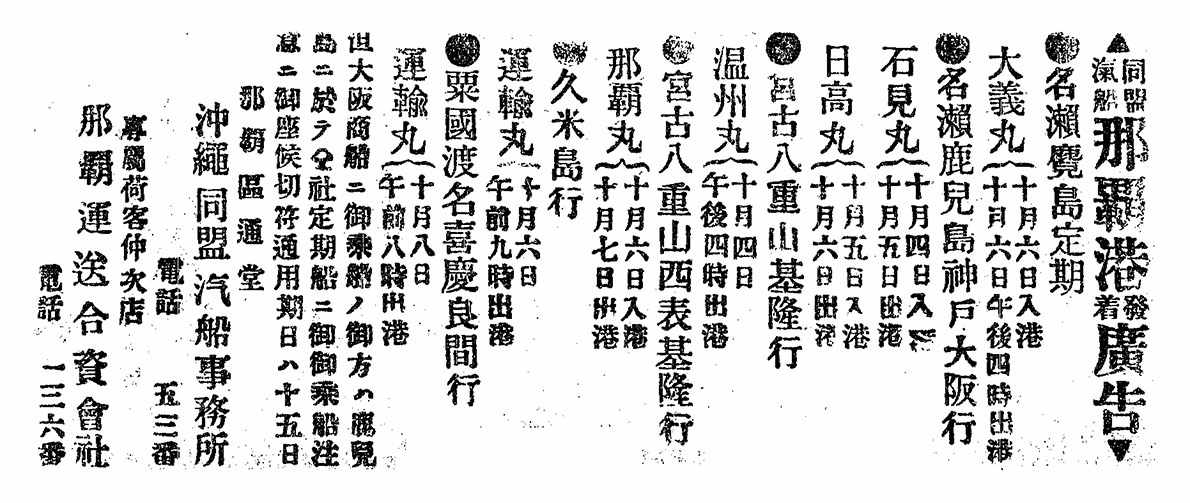 ▲同盟汽船那覇港發着廣告▼
●名瀬鹿島定期
大義丸{十月六日入港
十月六日午後四時出港
●名瀬鹿兒島神戸大阪行
石見丸{十月四日入港
十月五日出港
日高丸{十月五日入港
十月六日出港
●宮古八重山基隆行
温州丸{十月四日
午後四時出港
●宮古八重山西表基隆行
那覇丸{十月六日入港
十月七日出港
●久米島行
運輸丸{十月六日
午前九時出港
●粟國渡名喜慶良間行
運輸丸{十月八日
午前八時出港
但大阪商船ニ御乘船ノ御方ハ鹿兒
島ニ於テ仝社定期船ニ御御乘船注
意ニ御座候切符通用期日ハ十五日
那覇區通堂
沖繩同盟汽船事務所
電話 五三番
專屬荷客仲次店
那覇運送合資會社
電話 一三六番